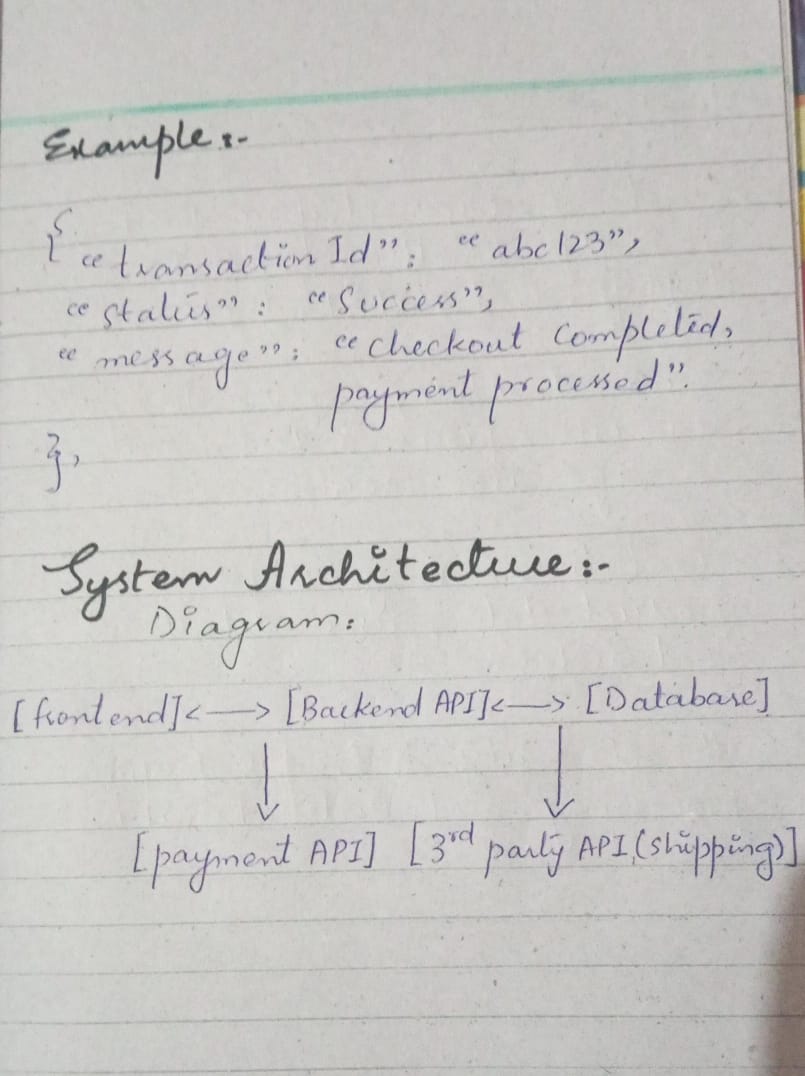 Example :-
{ "transaction Id" : "abc123",
"status" : "Success",
"message" : "checkout Completed,
payment processed".
},
System Architecture :-
Diagram :
[frontend] <—> [Backend API] <—> [Database]
[payment API] [3rd party API (shipping)]